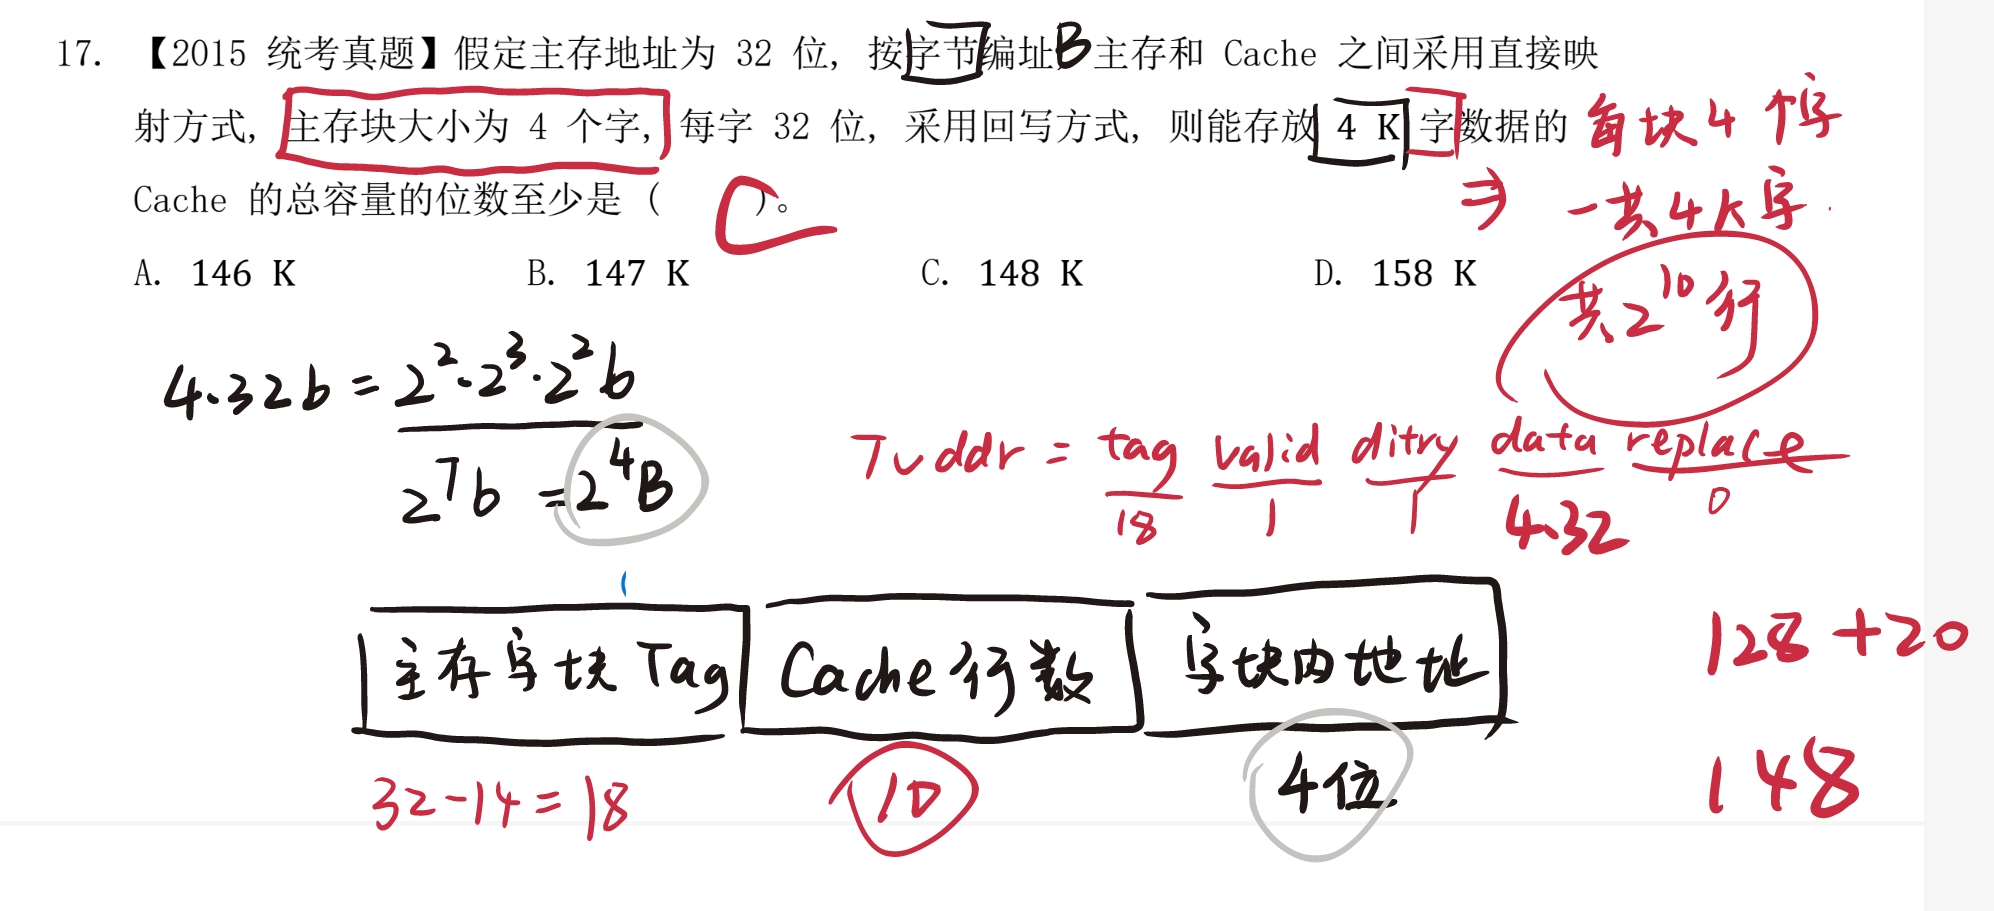 17. 【2015 统考真题】假定主存地址为 32 位, 按字节编址 B 主存和 Cache 之间采用直接映
射方式, 主存块大小为 4 个字, 每字 32 位, 采用回写方式, 则能存放 4 K 字数据的
Cache 的总容量的位数至少是 ( C )。
A. 146 K B. 147 K C. 148 K D. 158 K
每块4个字
⇒ 一共4K字.
共2^10行
4·32b = 2^2·2^3·2^2b
2^7b = 2^4B
Tvddr = tag valid ditry data replace
18 1 1 4·32 0
主存字块Tag Cache行数 字块内地址
32-14=18 10 4位
128+20
148